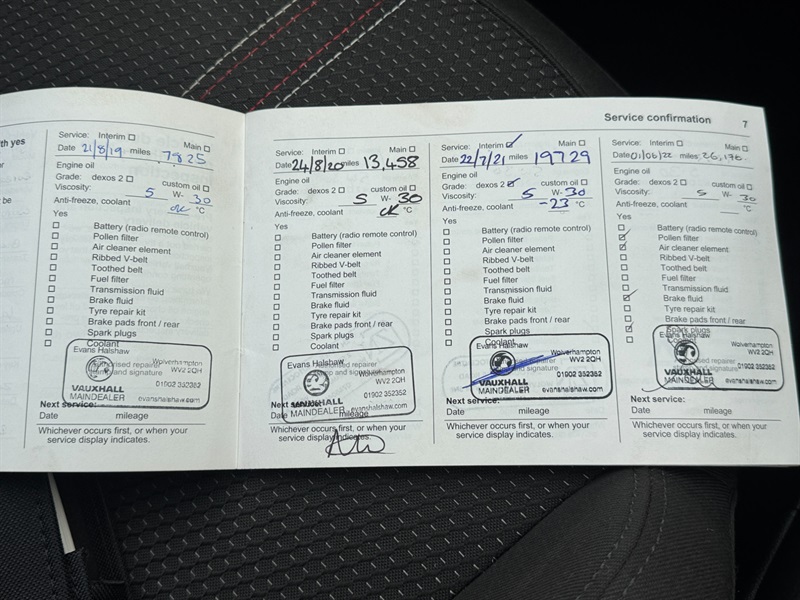 Service confirmation 7
th yes
or
be
Service: Interim Main
Date 21/8/19 miles 7825
Engine oil
Grade: dexos 2 custom oil
Viscosity: 5 W- 30
Anti-freeze, coolant ok °C
Yes
Battery (radio remote control)
Pollen filter
Air cleaner element
Ribbed V-belt
Toothed belt
Fuel filter
Transmission fluid
Brake fluid
Tyre repair kit
Brake pads front / rear
Spark plugs
Coolant
Evans Halshaw
Authorised repairer Wolverhampton
stamp and signature WV2 2QH
01902 352352
VAUXHALL
MAINDEALER evanshalshaw.com
Next service:
Date mileage
Whichever occurs first, or when your
service display indicates.
Service: Interim Main
Date 24/8/20 miles 13,458
Engine oil
Grade: dexos 2 custom oil
Viscosity: 5 W- 30
Anti-freeze, coolant ok °C
Yes
Battery (radio remote control)
Pollen filter
Air cleaner element
Ribbed V-belt
Toothed belt
Fuel filter
Transmission fluid
Brake fluid
Tyre repair kit
Brake pads front / rear
Spark plugs
Coolant
Evans Halshaw
repairer Wolverhampton
and signature WV2 2QH
01902 352352
Next VAUXHALL
Date MAINDEALER evanshalshaw.com
mileage
Whichever occurs first, or when your
service display indicates.
Service: Interim Main
Date 22/7/21 miles 19729
Engine oil
Grade: dexos 2 custom oil
Viscosity: 5 W- 30
Anti-freeze, coolant -23 °C
Yes
Battery (radio remote control)
Pollen filter
Air cleaner element
Ribbed V-belt
Toothed belt
Fuel filter
Transmission fluid
Brake fluid
Tyre repair kit
Brake pads front / rear
Spark plugs
Coolant
Evans Halshaw
Wolverhampton
repairer WV2 2QH
and signature 01902 352352
VAUXHALL
MAINDEALER evanshalshaw.com
Next service:
Date mileage
Whichever occurs first, or when your
service display indicates.
Service: Interim Main
Date 01/06/22 miles 26,176.
Engine oil
Grade: dexos 2 custom oil
Viscosity: 5 W- 30
Anti-freeze, coolant °C
Yes
Battery (radio remote control)
Pollen filter
Air cleaner element
Ribbed V-belt
Toothed belt
Fuel filter
Transmission fluid
Brake fluid
Tyre repair kit
Brake pads front / rear
Spark plugs
Evans Halshaw
Wolverhampton
WV2 2QH
01902 352352
VAUXHALL
MAINDEALER evanshalshaw.com
Next service:
Date mileage
Whichever occurs first, or when your
service display indicates.